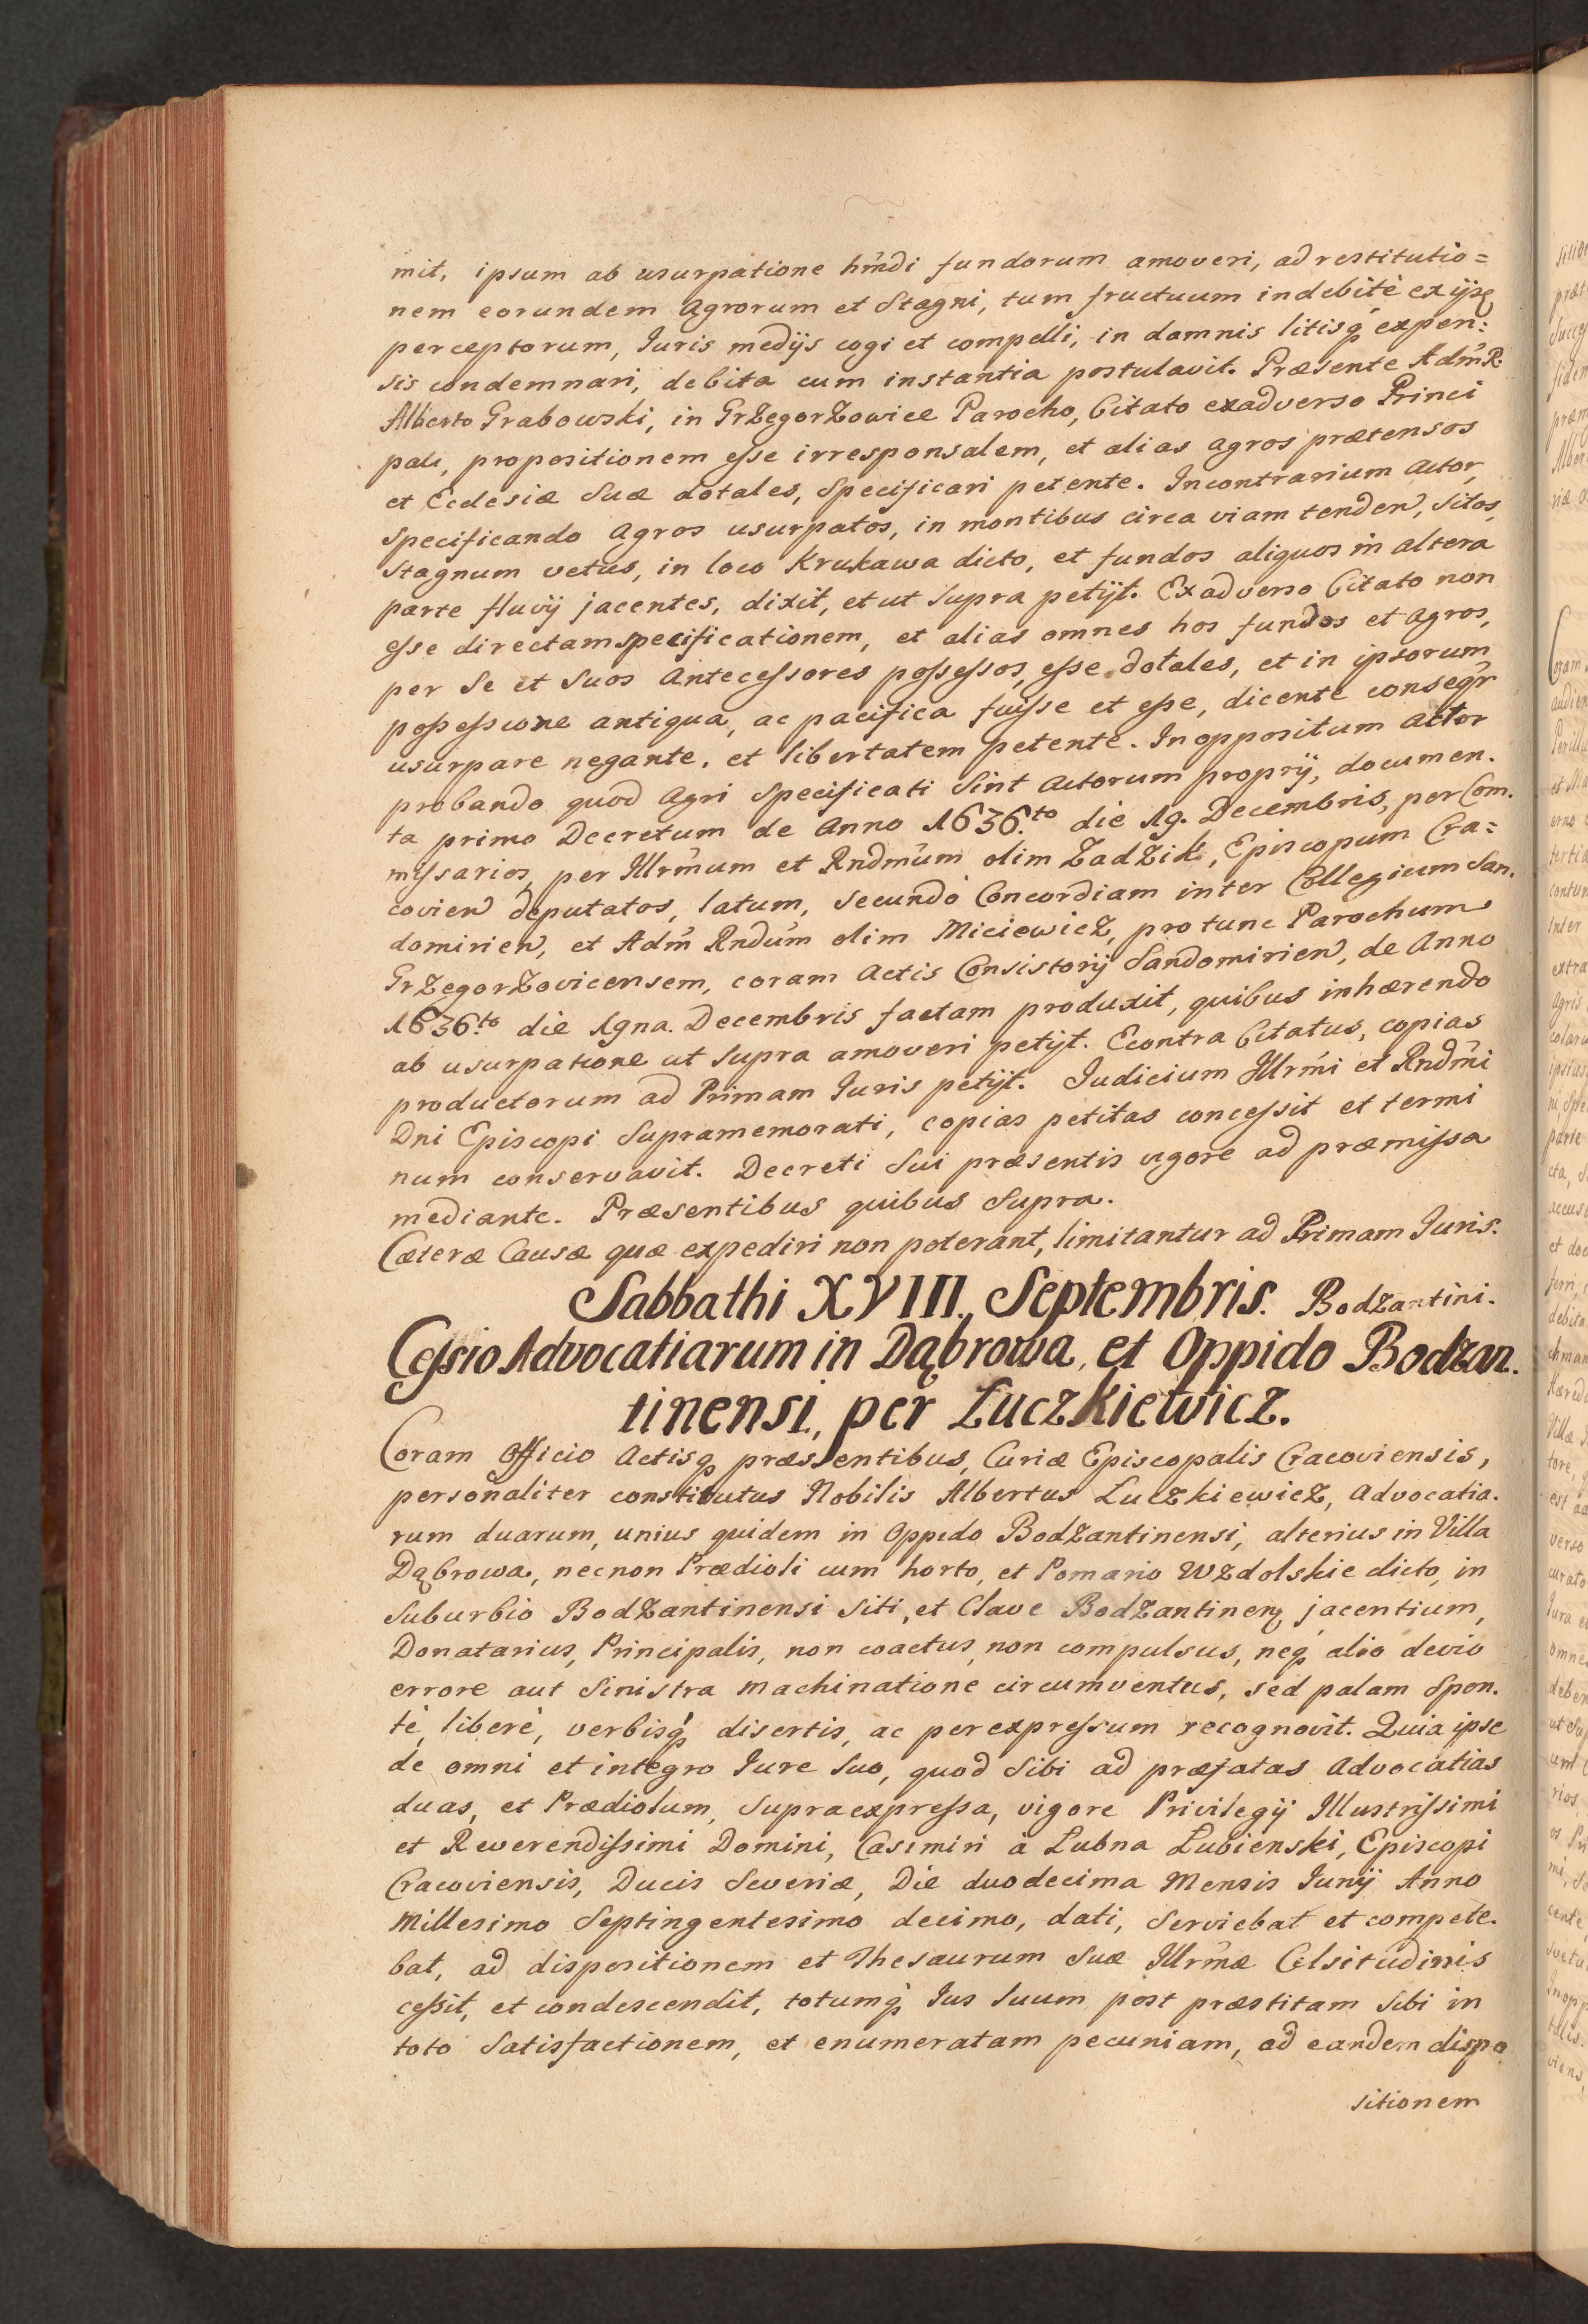 mit, ipsum ab usurpatione hmdi fundorum amoveri, ad restitutio=
nem eorundem Agrorum et Stagni, tum fructuum indebitè ex ijsq
perceptorum, Iuris medijs cogi et compelli, in damnis litisq expen:
sis condemnari, debita cum instantia postulavit. Præsente Adm R:
Alberto Grabowski, in GrZegorZowice Parocho, Citato exadverso Princi
pali, propositionem eſse irresponsalem, et alias agros prætensos
et Ecclesiæ Suæ dotales, Specificari petente. Incontrarium Actor,
Specificando Agros usurpatos, in montibus circa viam tenden, Sitos,
Stagnum vetus, in loco Krukawa dicto, et fundos aliquos in altera
parte fluvij jacentes, dixit, et ut Supra petijt. Exadverso Citato non
eſse directam specificationem, et alias omnes hos fundos et agros,
per Se et Suos Anteceſsores poſseſsos, eſse dotales, et in ipsorum
poſseſsione antiqua, ac pacifica fuiſse et eſse, dicente consegr
usurpare negante, et libertatem petente. In oppositum Actor
probando quod Agri Specificati Sint Actorum proprij, documen.
ta primo Decretum de Anno 1636.to die 19. Decembris, per Com.
miſsarios, per Illrmum et Rndmum olim ZadZik, Episcopum Cra=
covien deputatos, latum, Secundò Concordiam inter Collegium San.
domirien, et Adm Rndum olim MiciewicZ, pro tunc Parochum
GrZegorZovicensem, coram Actis Consistorij Sandomirien, de Anno
1636.to die 19na. Decembris factam produxit, quibus inhærendo
ab usurpatione ut Supra amoveri petijt. Econtra Citatus, copias
productorum ad Primam Iuris petijt. Iudicium Illrmi et Rndmi
Dni Episcopi Supramemorati, copias petitas conceſsit et termi
num conservavit. Decreti Sui præsentis vigore ad præmiſsa
mediante. Præsentibus quibus Supra.
Cæteræ Causæ quæ expediri non poterant, limitantur ad Primam Iuris.
Sabbathi XVIII. Septembris. Bodzantini.
Ceſsio Advocatiarum in Dąbrowa, et Oppido Bodzan.
tinensi, per Łuczkiewicz.
Coram Officio Actisq præssentibus, Curiæ Episcopalis Cracoviensis,
personaliter constitutus Nobilis Albertus ŁucZkiewicZ, Advocatia.
rum duarum, unius quidem in Oppido BodZantinensi, alterius in Villa
Dąbrowa, necnon Prædioli cum horto, et Pomario WZdolskie dicto, in
Suburbio BodZantinensi Siti, et Clave BodZantinen, jacentium,
Donatarius, Principalis, non coactus, non compulsus, neq alio devio
errore aut Sinistra machinatione circumventus, sed palam Spon.
tè, liberè, verbisq disertis, ac per expreſsum recognovit. Quia ipse
de omni et integro Iure Suo, quod Sibi ad præfatas Advocatias
duas, et Prædiolum, Supraexpreſsa, vigore Privilegij Illustriſsimi
et Reverendiſsimi Domini, Casimiri à Łubna Łubienski, Episcopi
Cracoviensis, Ducis Severiæ, Die duodecima Mensis Iunij Anno
Millesimo Septingentesimo decimo, dati, Serviebat et compete.
bat, ad dispositionem et Thesaurum Suæ Illrmæ Celsitudinis
ceſsit, et condescendit, totumq Ius Suum post præstitam Sibi in
toto Satisfactionem, et enumeratam pecuniam, ad eandem dispo
sitionem